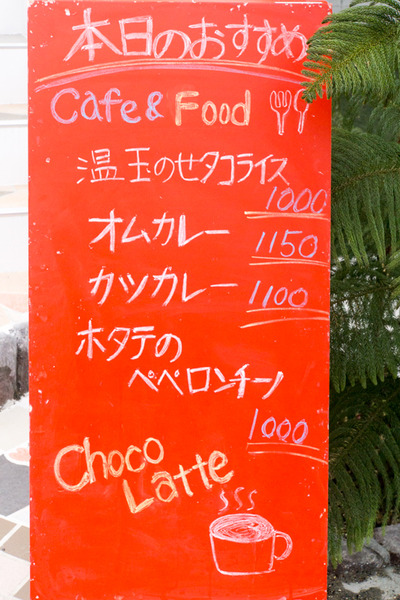 本日のおすすめ
Cafe & Food
温玉のせタコライス
1000
オムカレー 1150
カツカレー 1100
ホタテの
ペペロンチーノ
1000
Choco
Latte